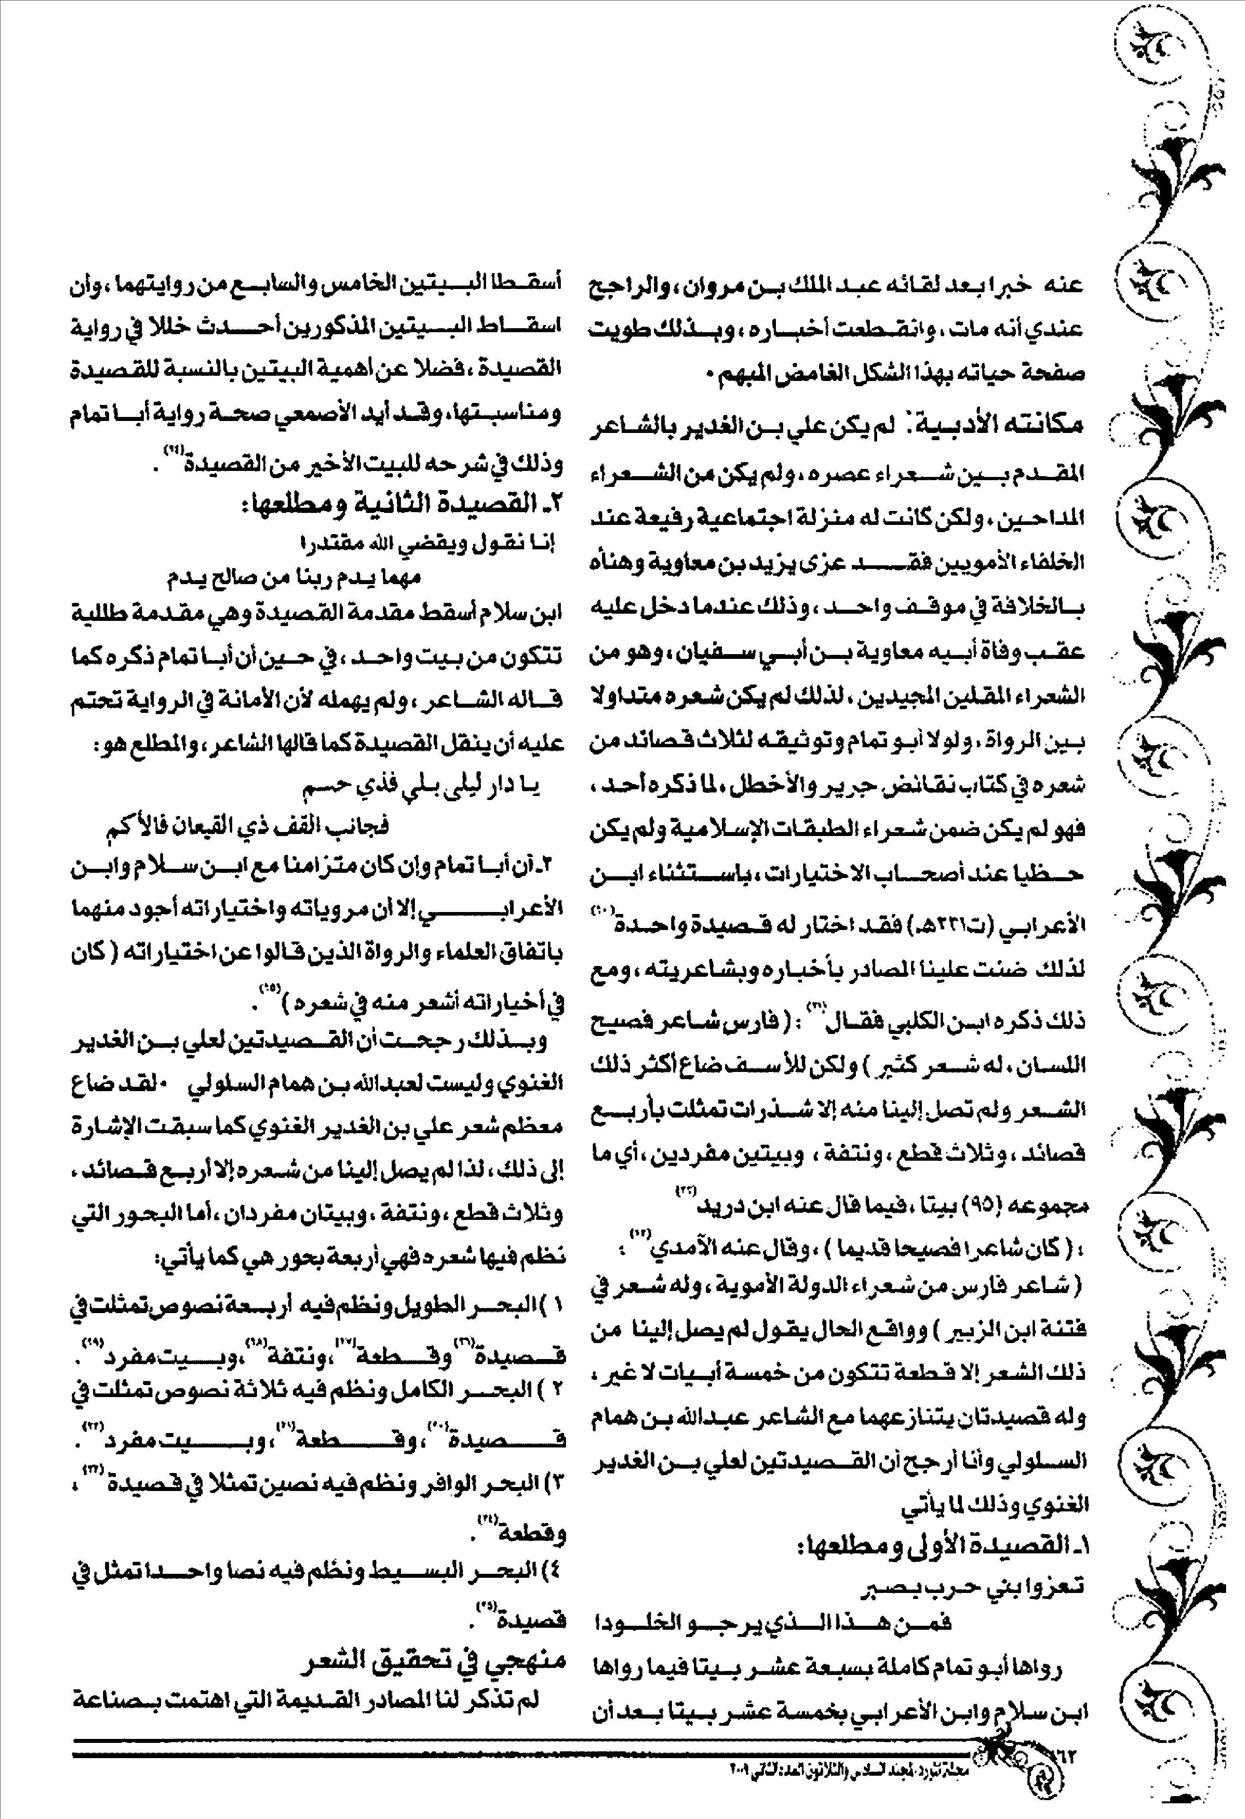 عنه خبرا بعد لقائه عبد الملك بن مروان، والراجح
عندي أنه مات، وانقطعت أخباره، وبذلك طويت
صفحة حياته بهذا الشكل الغامض المبهم.
مكانته الأدبية: لم يكن علي بن الغدير بالشاعر
المقدم بين شعراء عصره، ولم يكن من الشعراء
المداحين، ولكن كانت له منزلة اجتماعية رفيعة عند
الخلفاء الأمويين فقد عزى يزيد بن معاوية وهنأه
بالخلافة في موقف واحد، وذلك عندما دخل عليه
عقب وفاة أبيه معاوية بن أبي سفيان، وهو من
الشعراء المقلين المجيدين، لذلك لم يكن شعره متداولا
بين الرواة، ولولا أبو تمام وتوثيقه لثلاث قصائد من
شعره في كتاب نقائض جرير والأخطل، لما ذكره أحد،
فهو لم يكن ضمن شعراء الطبقات الإسلامية ولم يكن
حظيا عند أصحاب الاختيارات، باستثناء ابن
الأعرابي (ت٢٣١هـ) فقد اختار له قصيدة واحدة
لذلك ضنت علينا المصادر بأخباره وبشاعريته، ومع
ذلك ذكره ابن الكلبي فقال: (فارس شاعر فصيح
اللسان، له شعر كثير) ولكن للأسف ضاع أكثر ذلك
الشعر ولم تصل إلينا منه إلا شذرات تمثلت بأربع
قصائد، وثلاث قطع، ونتفة، وبيتين مفردين، أي ما
مجموعه (٩٥) بيتا، فيما قال عنه ابن دريد
: (كان شاعرا فصيحا قديما)، وقال عنه الآمدي:
(شاعر فارس من شعراء الدولة الأموية، وله شعر في
فتنة ابن الزبير) وواقع الحال يقول لم يصل إلينا من
ذلك الشعر إلا قطعة تتكون من خمسة أبيات لا غير،
وله قصيدتان يتنازعهما مع الشاعر عبدالله بن همام
السلولي وأنا أرجح أن القصيدتين لعلي بن الغدير
الغنوي وذلك لما يأتي
١ـ القصيدة الأولى ومطلعها:
تعزوا بني حرب بصبر
فمن هذا الذي يرجو الخلودا
رواها أبو تمام كاملة بسبعة عشر بيتا فيما رواها
ابن سلام وابن الأعرابي بخمسة عشر بيتا بعد أن
أسقطا البيتين الخامس والسابع من روايتهما، وان
اسقاط البيتين المذكورين أحدث خللا في رواية
القصيدة، فضلا عن أهمية البيتين بالنسبة للقصيدة
ومناسبتها، وقد أيد الأصمعي صحة رواية أبا تمام
وذلك في شرحه للبيت الأخير من القصيدة.
٢ـ القصيدة الثانية ومطلعها:
إنا نقول ويقضي الله مقتدرا
مهما يدم ربنا من صالح يدم
ابن سلام أسقط مقدمة القصيدة وهي مقدمة طللية
تتكون من بيت واحد، في حين أن أبا تمام ذكره كما
قاله الشاعر، ولم يهمله لأن الأمانة في الرواية تحتم
عليه أن ينقل القصيدة كما قالها الشاعر، والمطلع هو:
يا دار ليلى بلي فذي حسم
فجانب القف ذي القيعان فالأكم
٢ـ أن أبا تمام وإن كان متزامنا مع ابن سلام وابن
الأعرابي إلا أن مروياته واختياراته أجود منهما
باتفاق العلماء والرواة الذين قالوا عن اختياراته (كان
في أخياراته أشعر منه في شعره)(١٥).
وبذلك رجحت أن القصيدتين لعلي بن الغدير
الغنوي وليست لعبدالله بن همام السلولي . لقد ضاع
معظم شعر علي بن الغدير الغنوي كما سبقت الإشارة
إلى ذلك، لذا لم يصل إلينا من شعره إلا أربع قصائد،
وثلاث قطع، ونتفة، وبيتان مفردان، أما البحور التي
نظم فيها شعره فهي أربعة بحور هي كما يأتي:
١) البحر الطويل ونظم فيه أربعة نصوص تمثلت في
قصيدة(١٦) وقطعة(١٧)، ونتفة(١٨)، وبيت مفرد(١٩).
٢) البحر الكامل ونظم فيه ثلاثة نصوص تمثلت في
قصيدة(٢٠)، وقطعة(٢١)، وبيت مفرد(٢٢).
٣) البحر الوافر ونظم فيه نصين تمثلا في قصيدة(٢٣)،
وقطعة(٢٤).
٤) البحر البسيط ونظم فيه نصا واحدا تمثل في
قصيدة(٢٥).
منهجي في تحقيق الشعر
لم تذكر لنا المصادر القديمة التي اهتمت بصناعة
١٦٢
مجلة المورد المجلد السادس والثلاثون العدد الثاني ٢٠٠٩